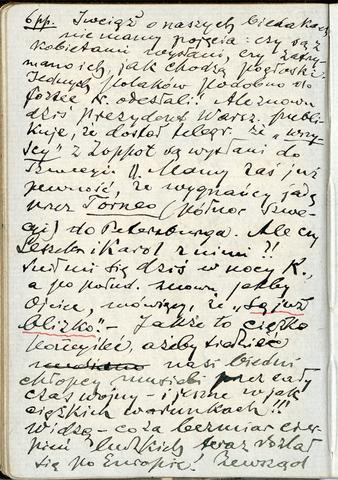 6 pp. Wciąż o naszych biedakach
nie mamy pojęcia: czy są z
kobietami wysłani, czy zatrzy-
mano ich, jak chodzą pogłoski.
Jednych Polaków podobno do
fortec N. odesłali! Ale znowu
dziś prezydent Warsz. publi-
kuje, że dostał telegr. że „wszy-
scy" z Zoppot są wysłani do
Szwecji!! Mamy zaś już
pewność, że wygnańcy jadą
przez Torneo (północ Szwe-
cji) do Petersburga. Ale czy
Leszek i Karol z nimi?!
Śnił mi się dziś w nocy K.,
a po połud. znowu jakby
Ojciec, mówiący, że „Są już
blizko". – Jakże to ciężko
pomyśleć, ażeby
nasi biedni
chłopcy musieli przez cały
czas wojny – i jeszcze w jak
ciężkich warunkach!!
Widzę – co za bezmiar cier-
pień ludzkich teraz rozlał
się po Europie! Zewsząd